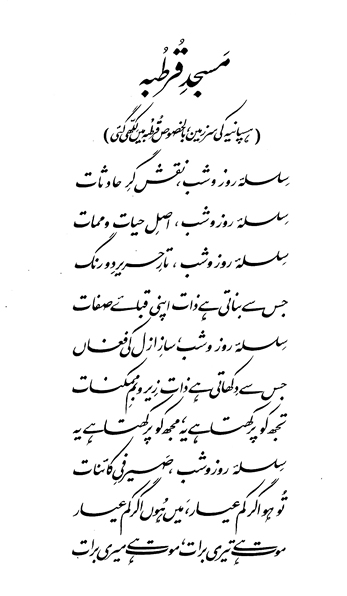 مَسجدِ قُرطُبہ
(ہسپانیہ کی سرزمین، بالخصوص قُرطُبہ میں لکھّی گئی)
سِلسلۂ روز و شب، نقش گرِ حادثات
سِلسلۂ روز و شب، اصلِ حیات و ممات
سِلسلۂ روز و شب، تارِ حریرِ دو رنگ
جس سے بناتی ہے ذات اپنی قبائے صفات
سِلسلۂ روز و شب، سازِ ازل کی فغاں
جس سے دِکھاتی ہے ذات زیر و بمِ ممکنات
تجھ کو پرکھتا ہے یہ، مجھ کو پرکھتا ہے یہ
سِلسلۂ روز و شب، صَیرفیِ کائنات
تُو ہو اگر کم عیار، مَیں ہُوں اگر کم عیار
موت ہے تیری برات، موت ہے میری برات